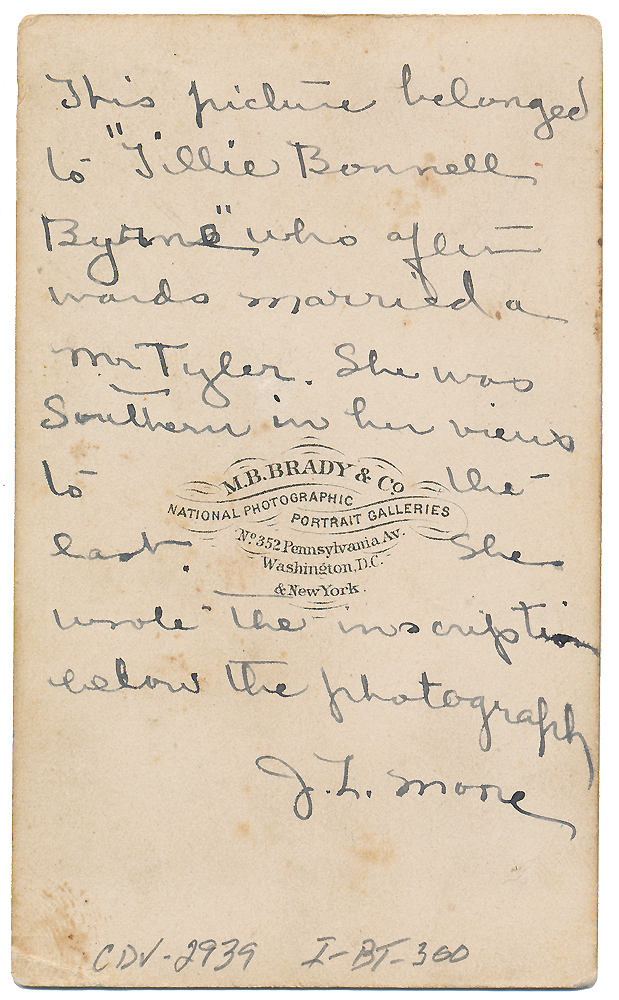 This picture belonged
to "Tillie Bonnell
Byrne" who after
wards married a
Mr Tyler. She was
Southern in her views
to the
M.B. BRADY & Co
NATIONAL PHOTOGRAPHIC
PORTRAIT GALLERIES
No 352 Pennsylvania Av.
Washington, D.C.
& New York.
last. She
wrote the inscription
below the photograph
J. L. Moore
CDV-2939 I-BT-360